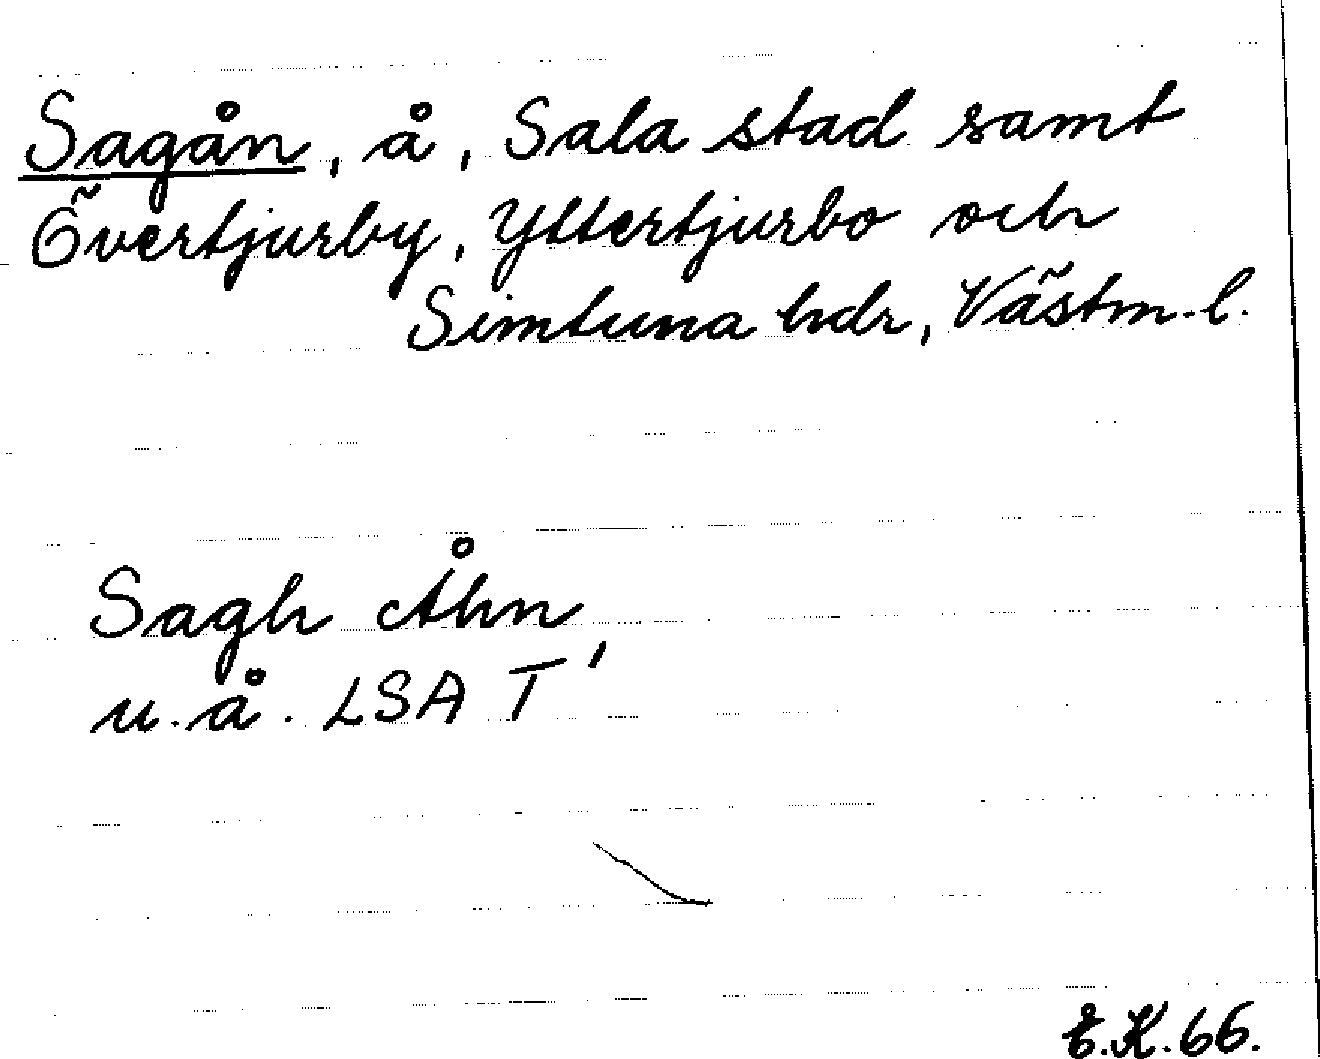 Sagån, å, Sala stad samt
Övertjurby, Yttertjurbo och
Simtuna hdr, Västm. l.
Sagh Åhn
u. å. LSA T'
E.K.66.